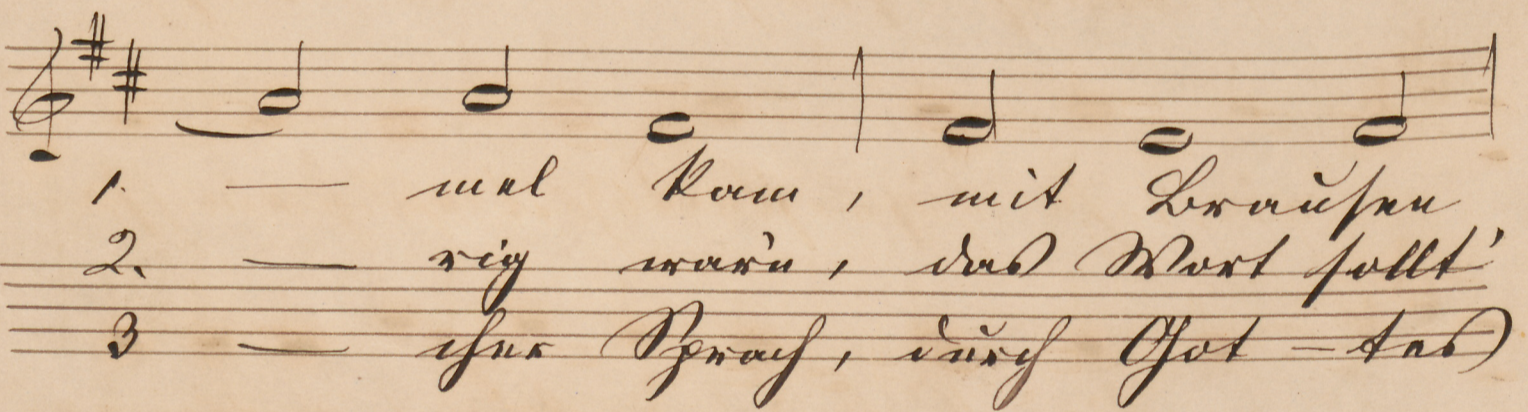 1. — mel kam, mit Brausen
2. — rig war'n, das Wort sollt'
3 — cher Sprach, durch Got - tes